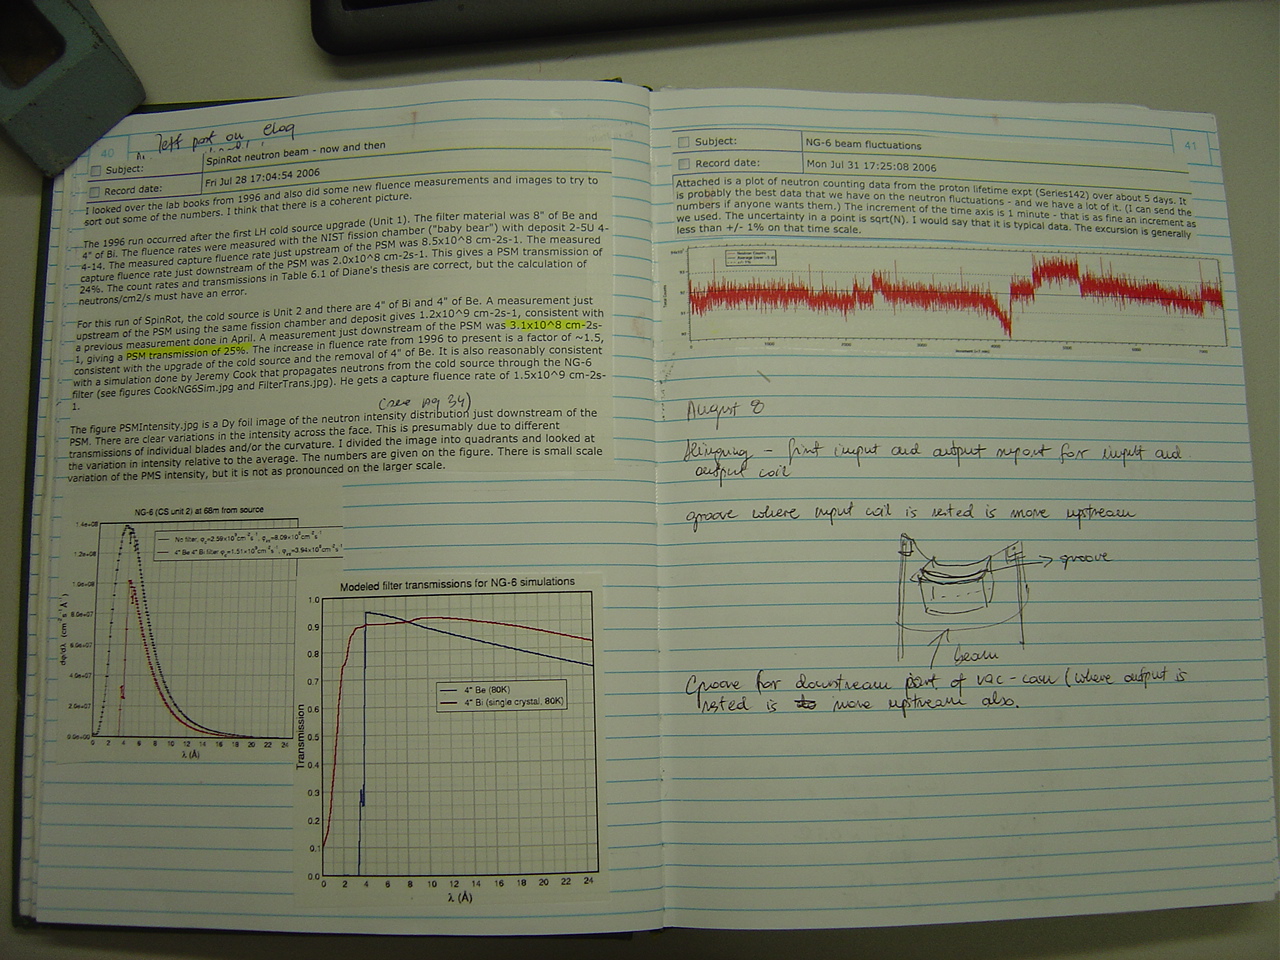 40
Jeff post on elog
Subject: SpinRot neutron beam - now and then
Record date: Fri Jul 28 17:04:54 2006
I looked over the lab books from 1996 and also did some new fluence measurements and images to try to
sort out some of the numbers. I think that there is a coherent picture.
The 1996 run occurred after the first LH cold source upgrade (Unit 1). The filter material was 8" of Be and
4" of Bi. The fluence rates were measured with the NIST fission chamber ("baby bear") with deposit 2-5U 4-
4-14. The measured capture fluence rate just upstream of the PSM was 8.5x10^8 cm-2s-1. The measured
capture fluence rate just downstream of the PSM was 2.0x10^8 cm-2s-1. This gives a PSM transmission of
24%. The count rates and transmissions in Table 6.1 of Diane's thesis are correct, but the calculation of
neutrons/cm2/s must have an error.
For this run of SpinRot, the cold source is Unit 2 and there are 4" of Bi and 4" of Be. A measurement just
upstream of the PSM using the same fission chamber and deposit gives 1.2x10^9 cm-2s-1, consistent with
a previous measurement done in April. A measurement just downstream of the PSM was 3.1x10^8 cm-2s-
1, giving a PSM transmission of 25%. The increase in fluence rate from 1996 to present is a factor of ~1.5,
consistent with the upgrade of the cold source and the removal of 4" of Be. It is also reasonably consistent
with a simulation done by Jeremy Cook that propagates neutrons from the cold source through the NG-6
filter (see figures CookNG6Sim.jpg and FilterTrans.jpg). He gets a capture fluence rate of 1.5x10^9 cm-2s-
1.
(see pg 34)
The figure PSMIntensity.jpg is a Dy foil image of the neutron intensity distribution just downstream of the
PSM. There are clear variations in the intensity across the face. This is presumably due to different
transmissions of individual blades and/or the curvature. I divided the image into quadrants and looked at
the variation in intensity relative to the average. The numbers are given on the figure. There is small scale
variation of the PMS intensity, but it is not as pronounced on the larger scale.
NG-6 (CS unit 2) at 68m from source
1.4e+08
1.2e+08
1.0e+08
8.0e+07
6.0e+07
4.0e+07
2.0e+07
0.0e+00
0 2 4 6 8 10 12 14 16 18 20 22 24
λ (Å)
Modeled filter transmissions for NG-6 simulations
4" Be (80K)
4" Bi (single crystal, 80K)
Transmission
1.0
0.9
0.8
0.7
0.6
0.5
0.4
0.3
0.2
0.1
0.0
0 2 4 6 8 10 12 14 16 18 20 22 24
λ (Å)
41
Subject: NG-6 beam fluctuations
Record date: Mon Jul 31 17:25:08 2006
Attached is a plot of neutron counting data from the proton lifetime expt (Series142) over about 5 days. It
is probably the best data that we have on the neutron fluctuations - and we have a lot of it. (I can send the
numbers if anyone wants them.) The increment of the time axis is 1 minute - that is as fine an increment as
we used. The uncertainty in a point is sqrt(N). I would say that it is typical data. The excursion is generally
less than +/- 1% on that time scale.
August 8
input and output mount for input and
output coil
groove where input coil is rested is more upstream
groove
beam
Groove for downstream part of vac-can (where output is
rested is more upstream also.